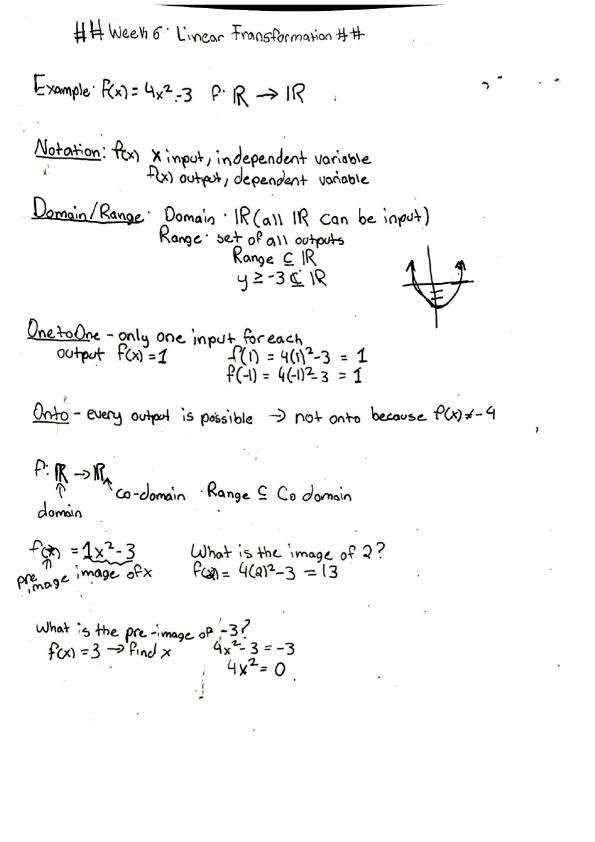 ## Week 6: Linear Transformation ##
Example: f(x) = 4x²-3 f: ℝ → ℝ
Notation: f(x) x input, independent variable
f(x) output, dependent variable
Domain/Range: Domain: ℝ (all ℝ can be input)
Range: set of all outputs
Range ⊆ ℝ
y ≥ -3 ⊆ ℝ
One to One - only one input for each
output f(x) = 1 f(1) = 4(1)²-3 = 1
f(-1) = 4(-1)²-3 = 1
Onto - every output is possible → not onto because f(x) ≠ -4
f: ℝ → ℝ
co-domain · Range ⊆ Co domain
domain
f(x) = 1x²-3 What is the image of 2?
pre image image of x f(2) = 4(2)²-3 = 13
What is the pre-image of -3?
f(x) = 3 → find x 4x²-3 = -3
4x² = 0